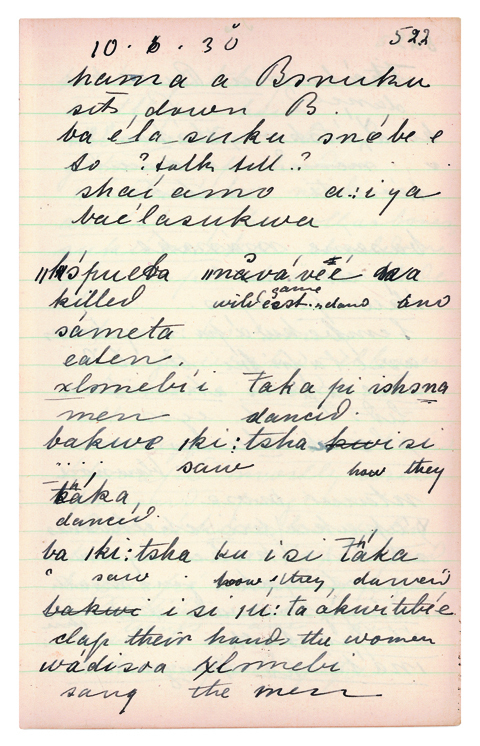 10. 6. 30 522
hama a Bsnuku
sits down B.
ba éla suku snébe e
to ? talk till ?
shai amo a:i ya
baélasukwa
killed wildebeest game and and
sámeta
eaten.
xlomebi i taka pi ishsna
men danced.
bakwe ıki:tsha kwi si
saw how they
táká
dancid.
ba ıki:tsha ku i si taka
" saw how they danced
bakwi i si
clap their hands the women
wádisoa xlomebi
sang the men